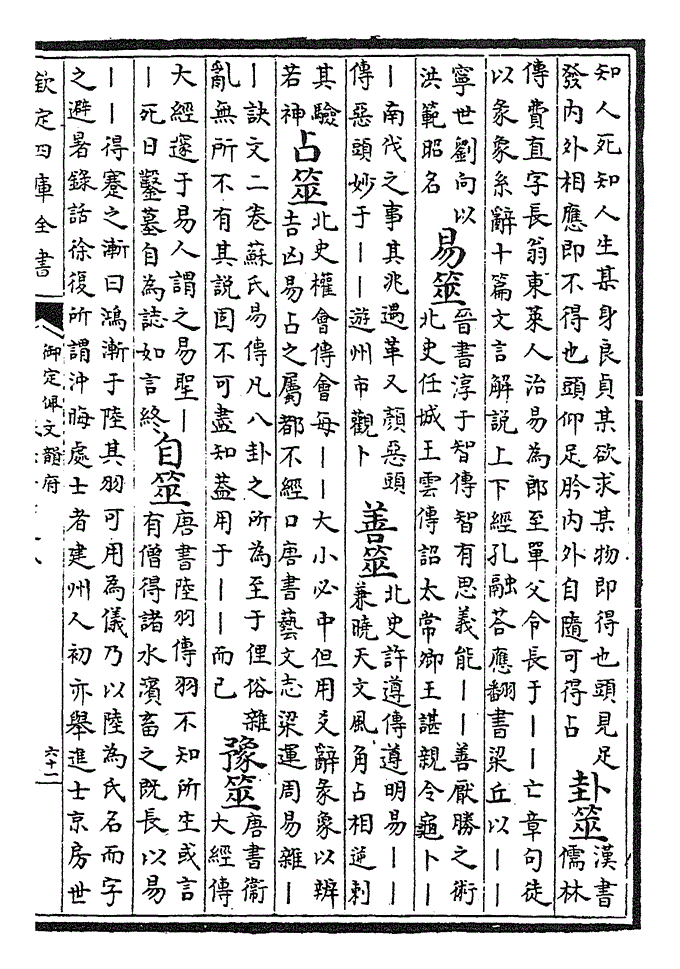 知人死知人生某身良貞某欲求某物即得也頭見足
發内外相應即不得也頭仰足肣内外自隨可得占
卦筮
漢書
儒林
傳費直字長翁東萊人治易為郎至單父令長于――亡章句徒
以彖象系辭十篇文言解説上下經孔融荅應翻書梁丘以――
寧世劉向以
洪範昭名
易筮
晉書淳于智傳智有思義能――善厭勝之術
北史任城王雲傳詔太常卿王諶親令龜卜―
―南伐之事其兆遇革又顔惡頭
傳惡頭妙于――遊州市觀卜
善筮
北史許遵傳遵明易――
兼曉天文風角占相逆刺
其驗
若神
占筮
北史權會傳會每――大小必中但用爻辭彖象以辨
吉凶易占之屬都不經口唐書藝文志梁運周易雜―
―訣文二卷蘇氏易傳凡八卦之所為至于俚俗雜
亂無所不有其説固不可盡知葢用于――而已
豫筮
唐書衞
大經傳
大經邃于易人謂之易聖―
―死日鑿墓自為誌如言終
自筮
唐書陸羽傳羽不知所生或言
有僧得諸水濱畜之既長以易
――得蹇之漸曰鴻漸于陸其羽可用為儀乃以陸為氏名而字
之避暑錄話徐復所謂沖晦處士者建州人初亦舉進士京房世
欽定四庫全書
御定佩文韻府
六十二